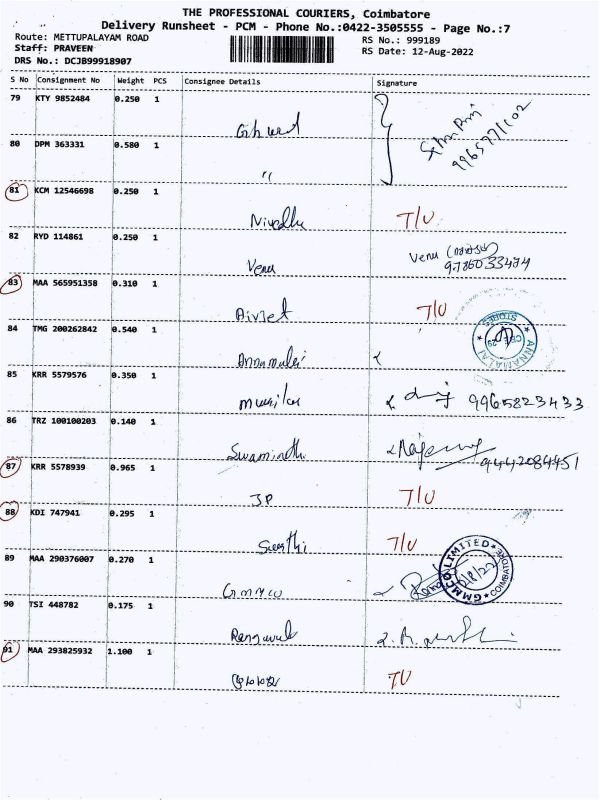 THE PROFESSIONAL COURIERS, Coimbatore
Delivery Runsheet - PCM - Phone No.:0422-3505555 - Page No.:7
Route: METTUPALAYAM ROAD RS No.: 999189
Staff: PRAVEEN RS Date: 12-Aug-2022
DRS No.: DCJB99918907
S No Consignment No Weight PCS Consignee Details Signature
79 KTY 9852484 0.250 1
9965771102
80 DPM 363331 0.580 1
"
81 KCM 12546698 0.250 1
Nivedha T/U
82 RYD 114861 0.250 1
Venu Venu
9786033474
83 MAA 565951358 0.310 1
T/U
84 TMG 200262842 0.540 1
Annamalai ANNAMALAI STORES CBE 29
85 KRR 5579576 0.350 1
9965823433
86 TRZ 100100203 0.140 1
Swaminathi 9442084451
87 KRR 5578939 0.965 1
JP T/U
88 KDI 747941 0.295 1
T/U
89 MAA 290376007 0.270 1
Gmmco GMMCO LIMITED COIMBATORE
90 TSI 448782 0.175 1
91 MAA 293825932 1.100 1
TU